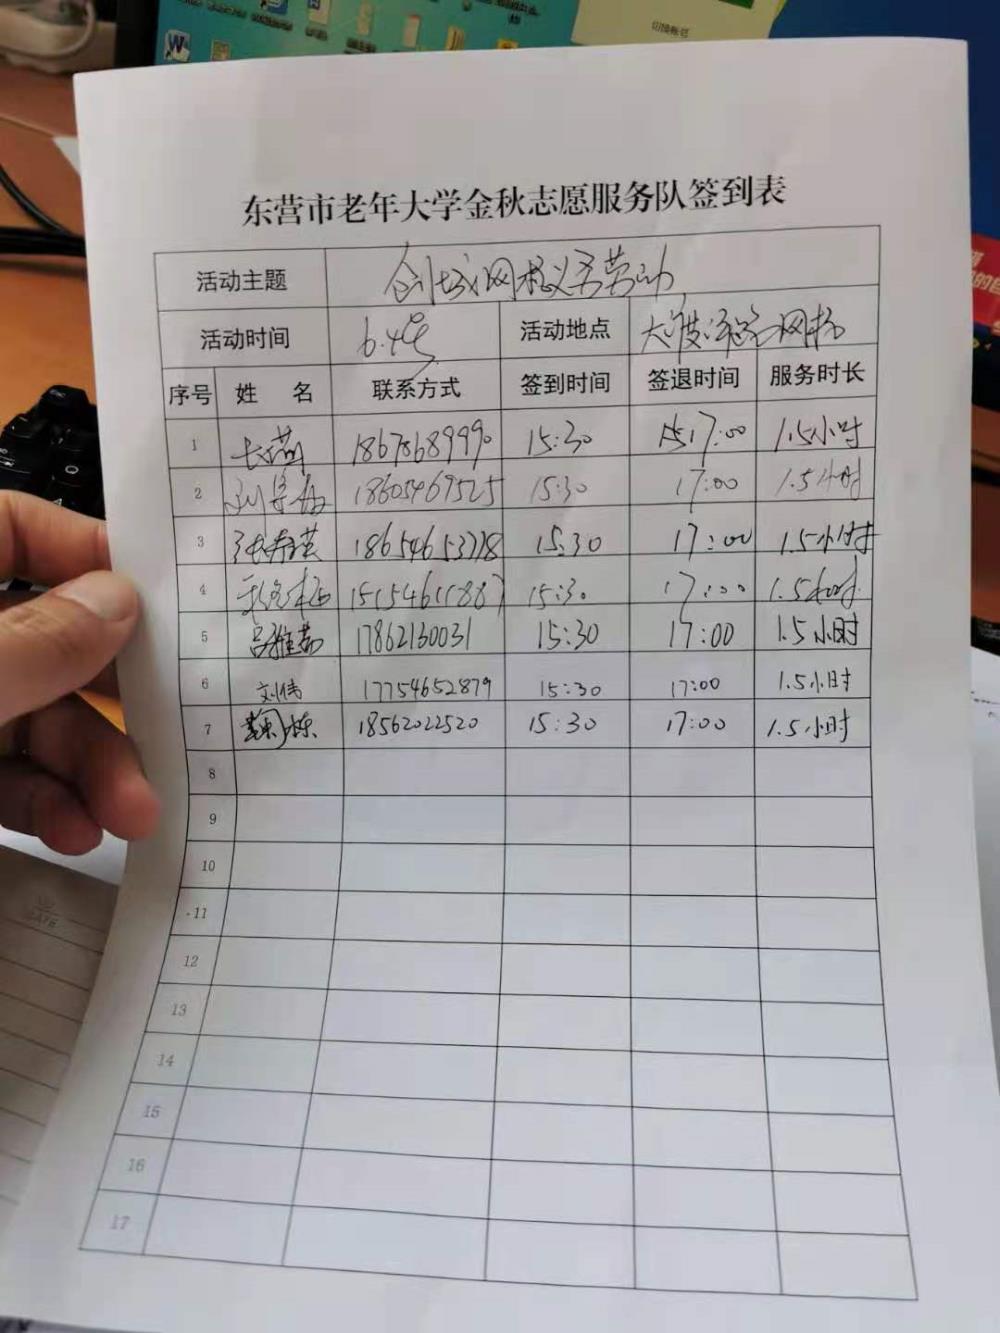 东营市老年大学金秋志愿服务队签到表
活动主题 创城网格义务劳动
活动时间 6.4号 活动地点 大渡河路网格
序号 姓 名 联系方式 签到时间 签退时间 服务时长
1 18678689990 15:30 17:00 1.5小时
2 18605469525 15:30 17:00 1.5小时
3 15:30 17:00 1.5小时
4 15:30 17:00 1.5小时
5 吕雅茹 17862130031 15:30 17:00 1.5小时
6 刘伟 17754652879 15:30 17:00 1.5小时
7 18562022520 15:30 17:00 1.5小时
8
9
10
11
12
13
14
15
16
17